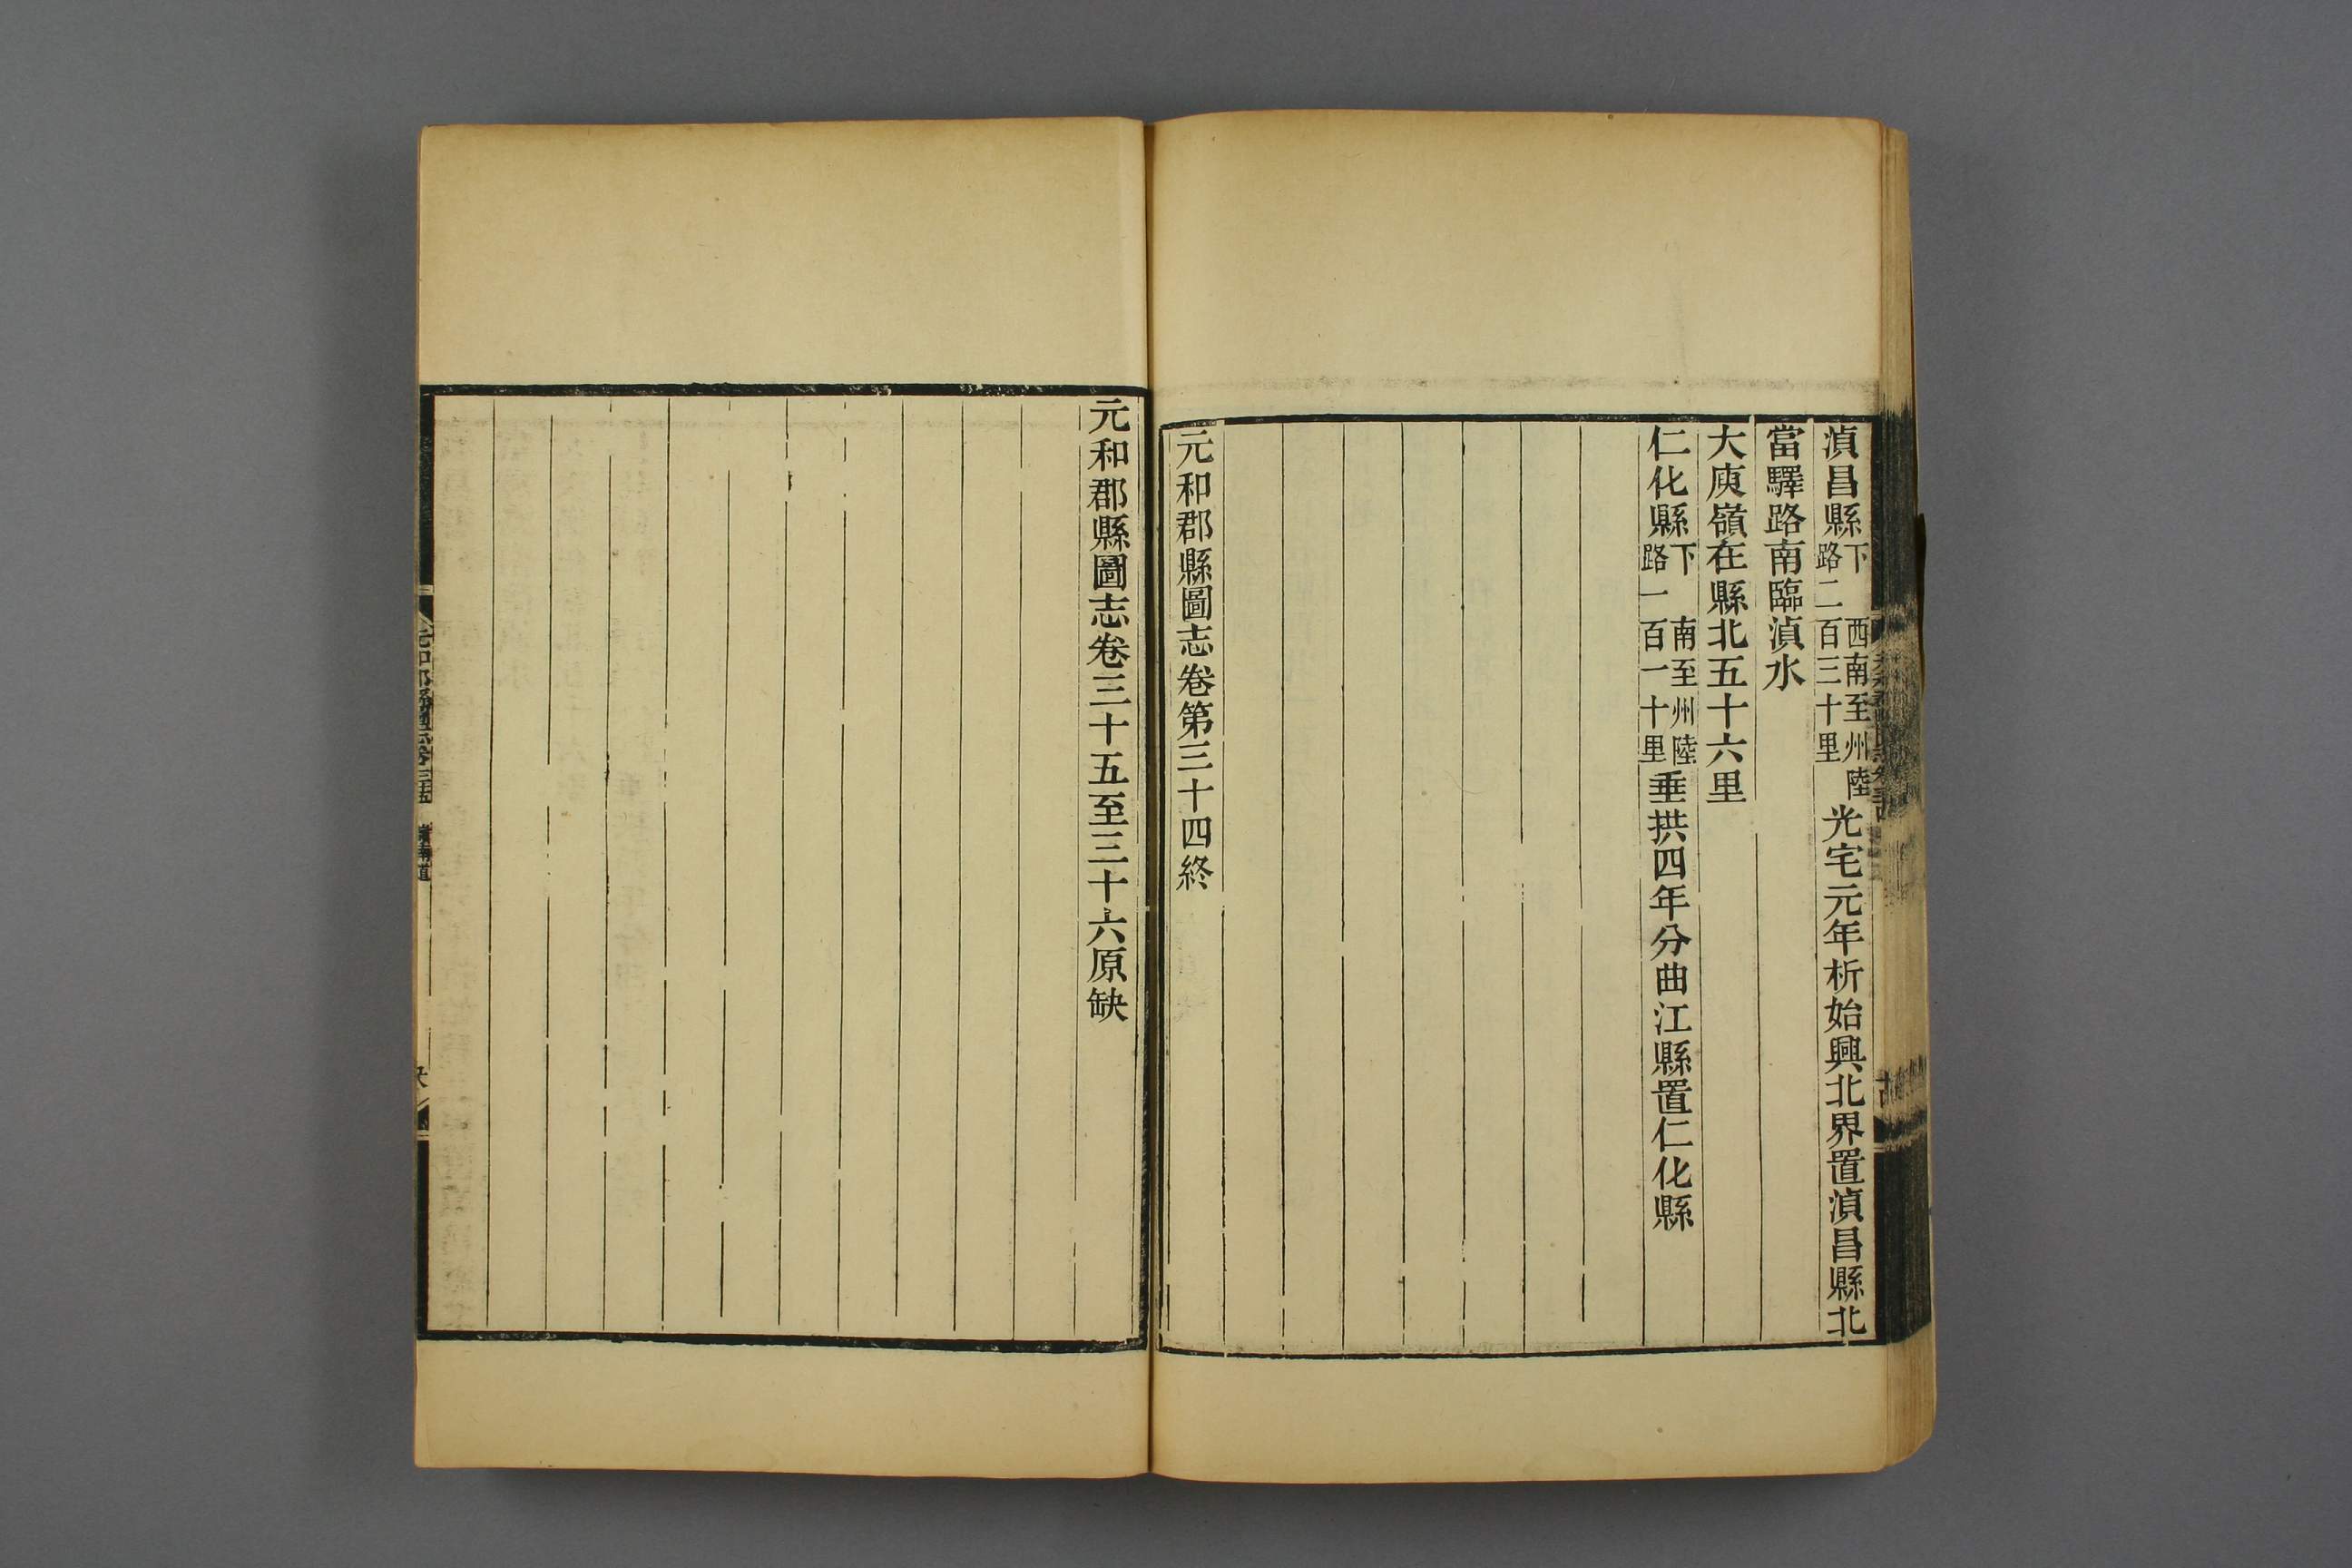 湞昌縣下　西南至州陸路二百三十里光宅元年析始興北界置湞昌縣北
當驛路南臨湞水
大庾嶺在縣北五十六里
仁化縣下　南至州陸路一百一十里垂拱四年分曲江縣置仁化縣
元和郡縣圖志卷第三十四終
元和郡縣圖志卷三十五至三十六原缺